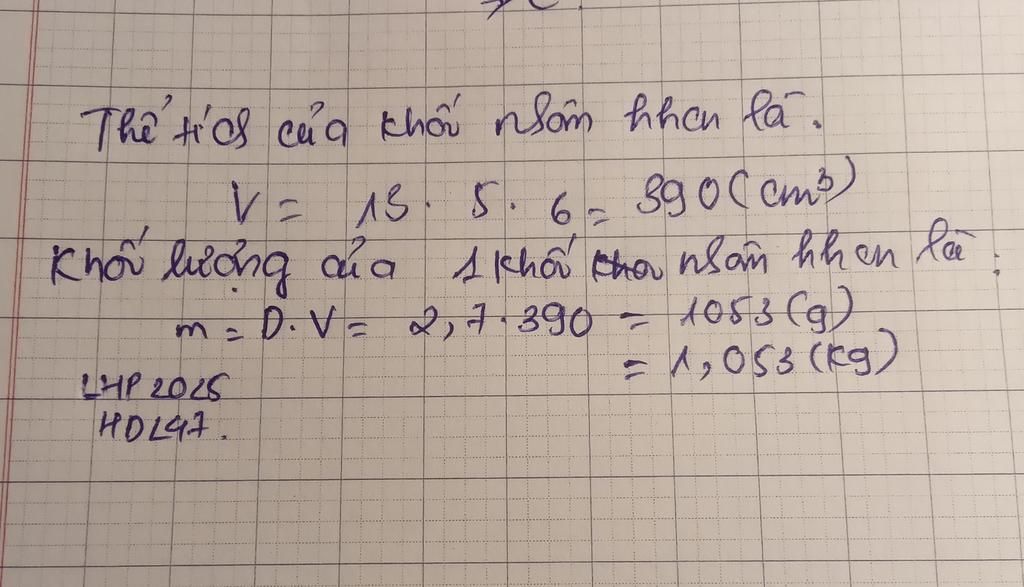 Thể tích của khối nhôm hhcn là.
V = 13 . 5 . 6 = 390 (cm³)
Khối lượng của 1 khối nhôm hhcn là:
m = D . V = 2,7 . 390 = 1053 (g)
= 1,053 (kg)
LHP 2025
HDL47.